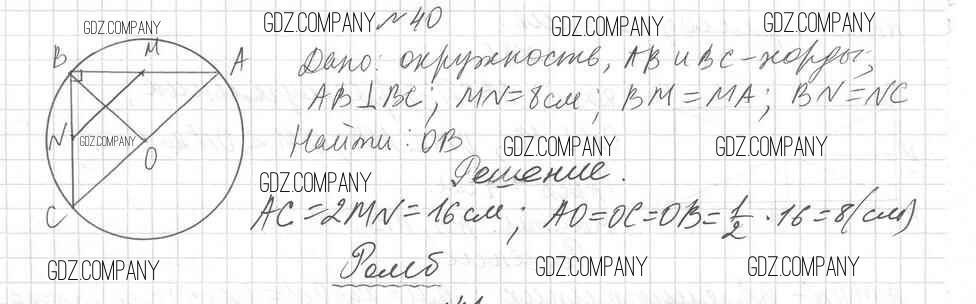 GDZ.COMPANY № 40 GDZ.COMPANY GDZ.COMPANY
GDZ.COMPANY
B M A
Дано: окружность, AB и BC - хорды;
AB⊥BC; MN=8см; BM=MA; BN=NC
N GDZ.COMPANY O
Найти: OB GDZ.COMPANY GDZ.COMPANY
GDZ.COMPANY Решение.
C
AC=2MN=16см; AO=OC=OB=1/2·16=8(см)
GDZ.COMPANY Ромб GDZ.COMPANY GDZ.COMPANY